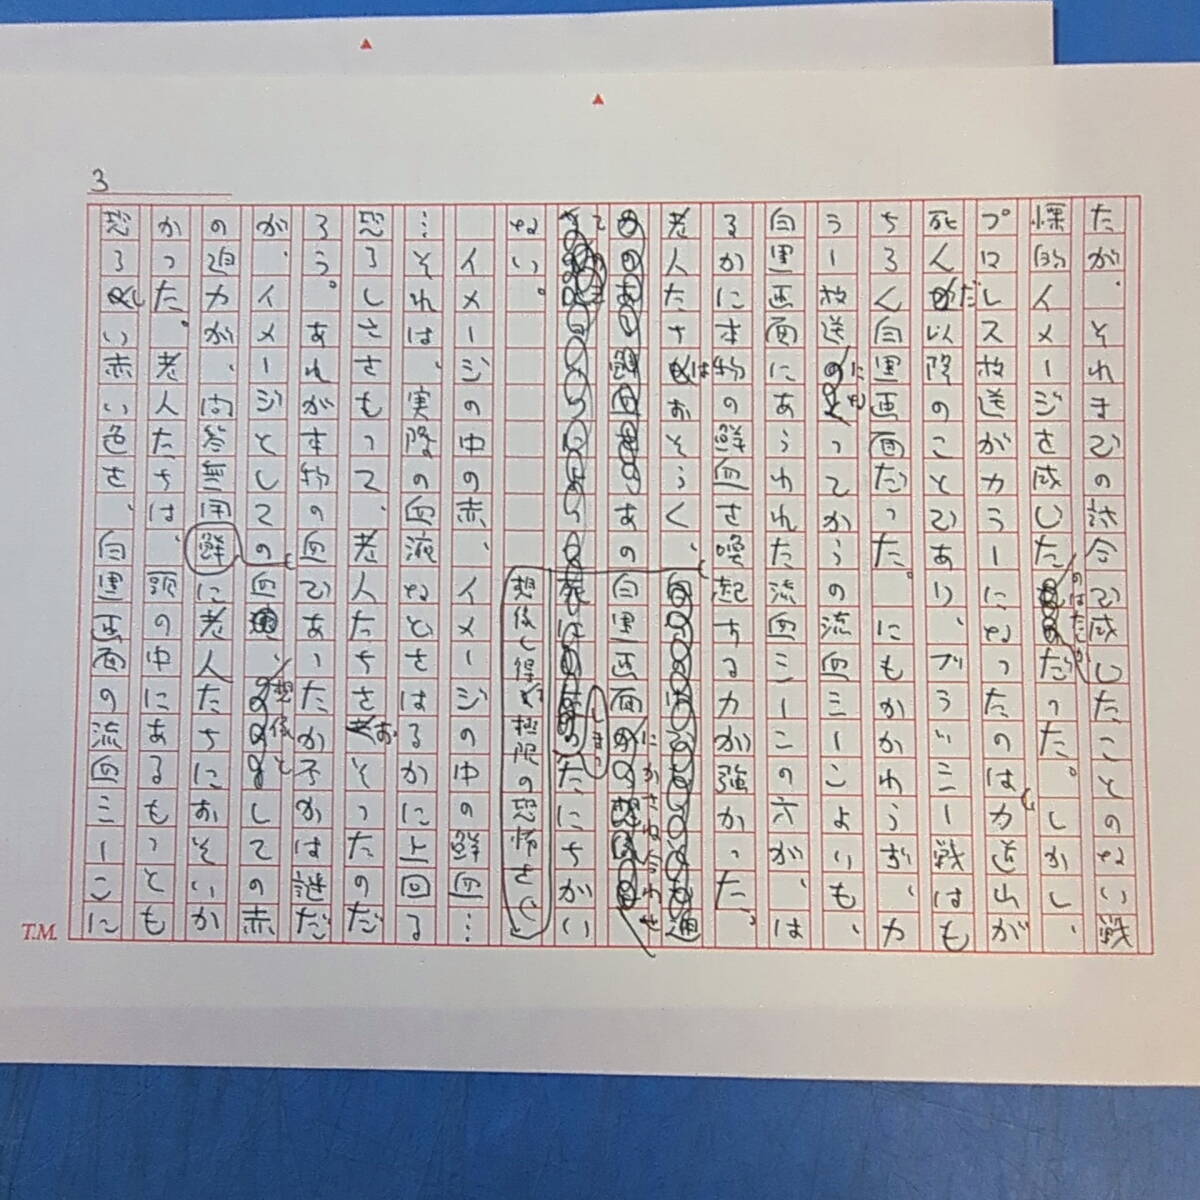 3
たが、それまでの試合で感じたことのない戦
慄的イメージを感じたのはたしかだった。しかし、
プロレス放送がカラーになったのは力道山が
死んだ以降のことであり、ブラッシー戦はも
ちろん白黒画面だった。にもかかわらず、カ
ラー放送にもってかうの流血ミーこよりも、
白黒画面にあらわれた流血ミーこの方が、は
るかに本物の鮮血を喚起する力が強かった。
老人たちはおそらく、
あの白黒画面にかさね合わせ
て
想像し得る極限の恐怖を
しまったにちがい
ない。
イメージの中の赤、イメージの中の鮮血…
…それは、実際の血液などをはるかに上回る
恐ろしさをもって、老人たちをおそったのだ
ろう。あれが本物の血であったか否かは謎だ
が、イメージとしての鮮血、想像としての赤
の迫力が、問答無用に老人たちにおそいか
かった。老人たちは、頭の中にあるもっとも
恐ろしい赤い色を、白黒画面の流血ミーこに
T.M.